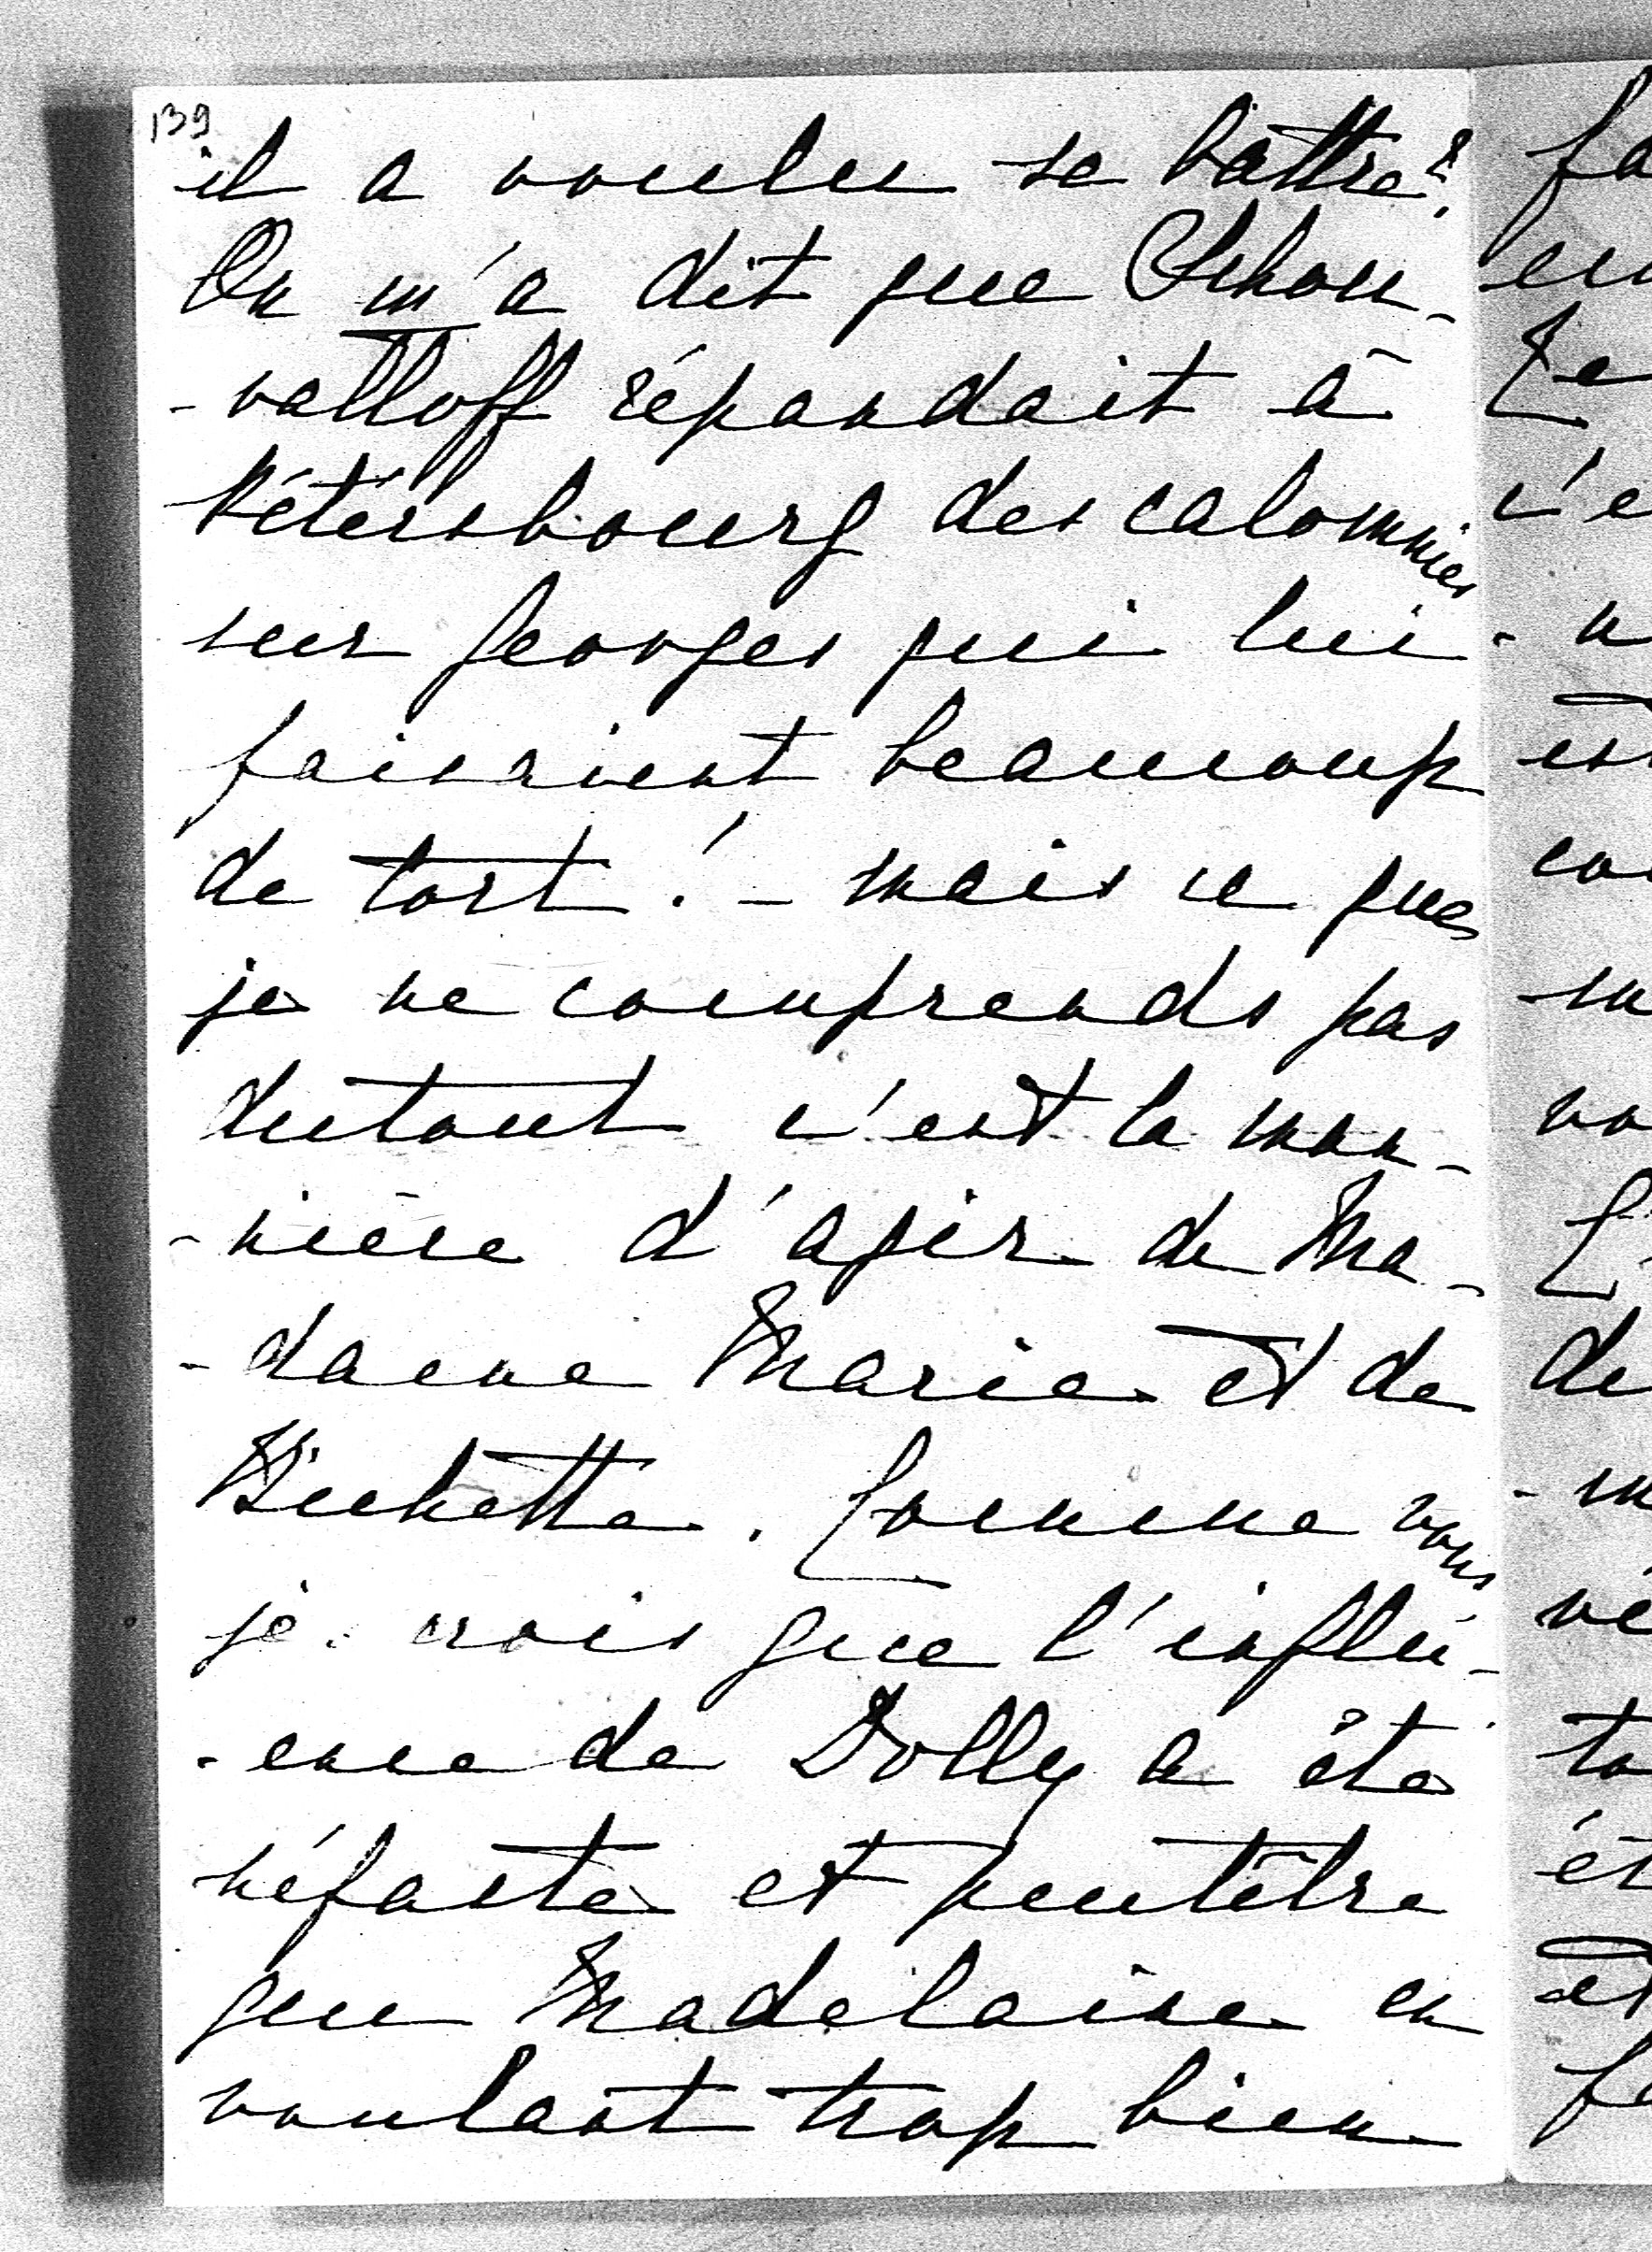 139
il a voulu se battre?
On m'a dit que Schou-
-valloff répandait à
Pétersbourg des calomnies
sur Georges qui lui
faisaient beaucoup
de tort! - mais ce que
je ne comprends pas
dutout c'est la man-
-nière d'agir de Ma-
-dame Marie et de
Comme vous
je crois que l'influ-
-ence de Dolly a été
néfaste et peutêtre
que Madelaine en
voulant trop bien